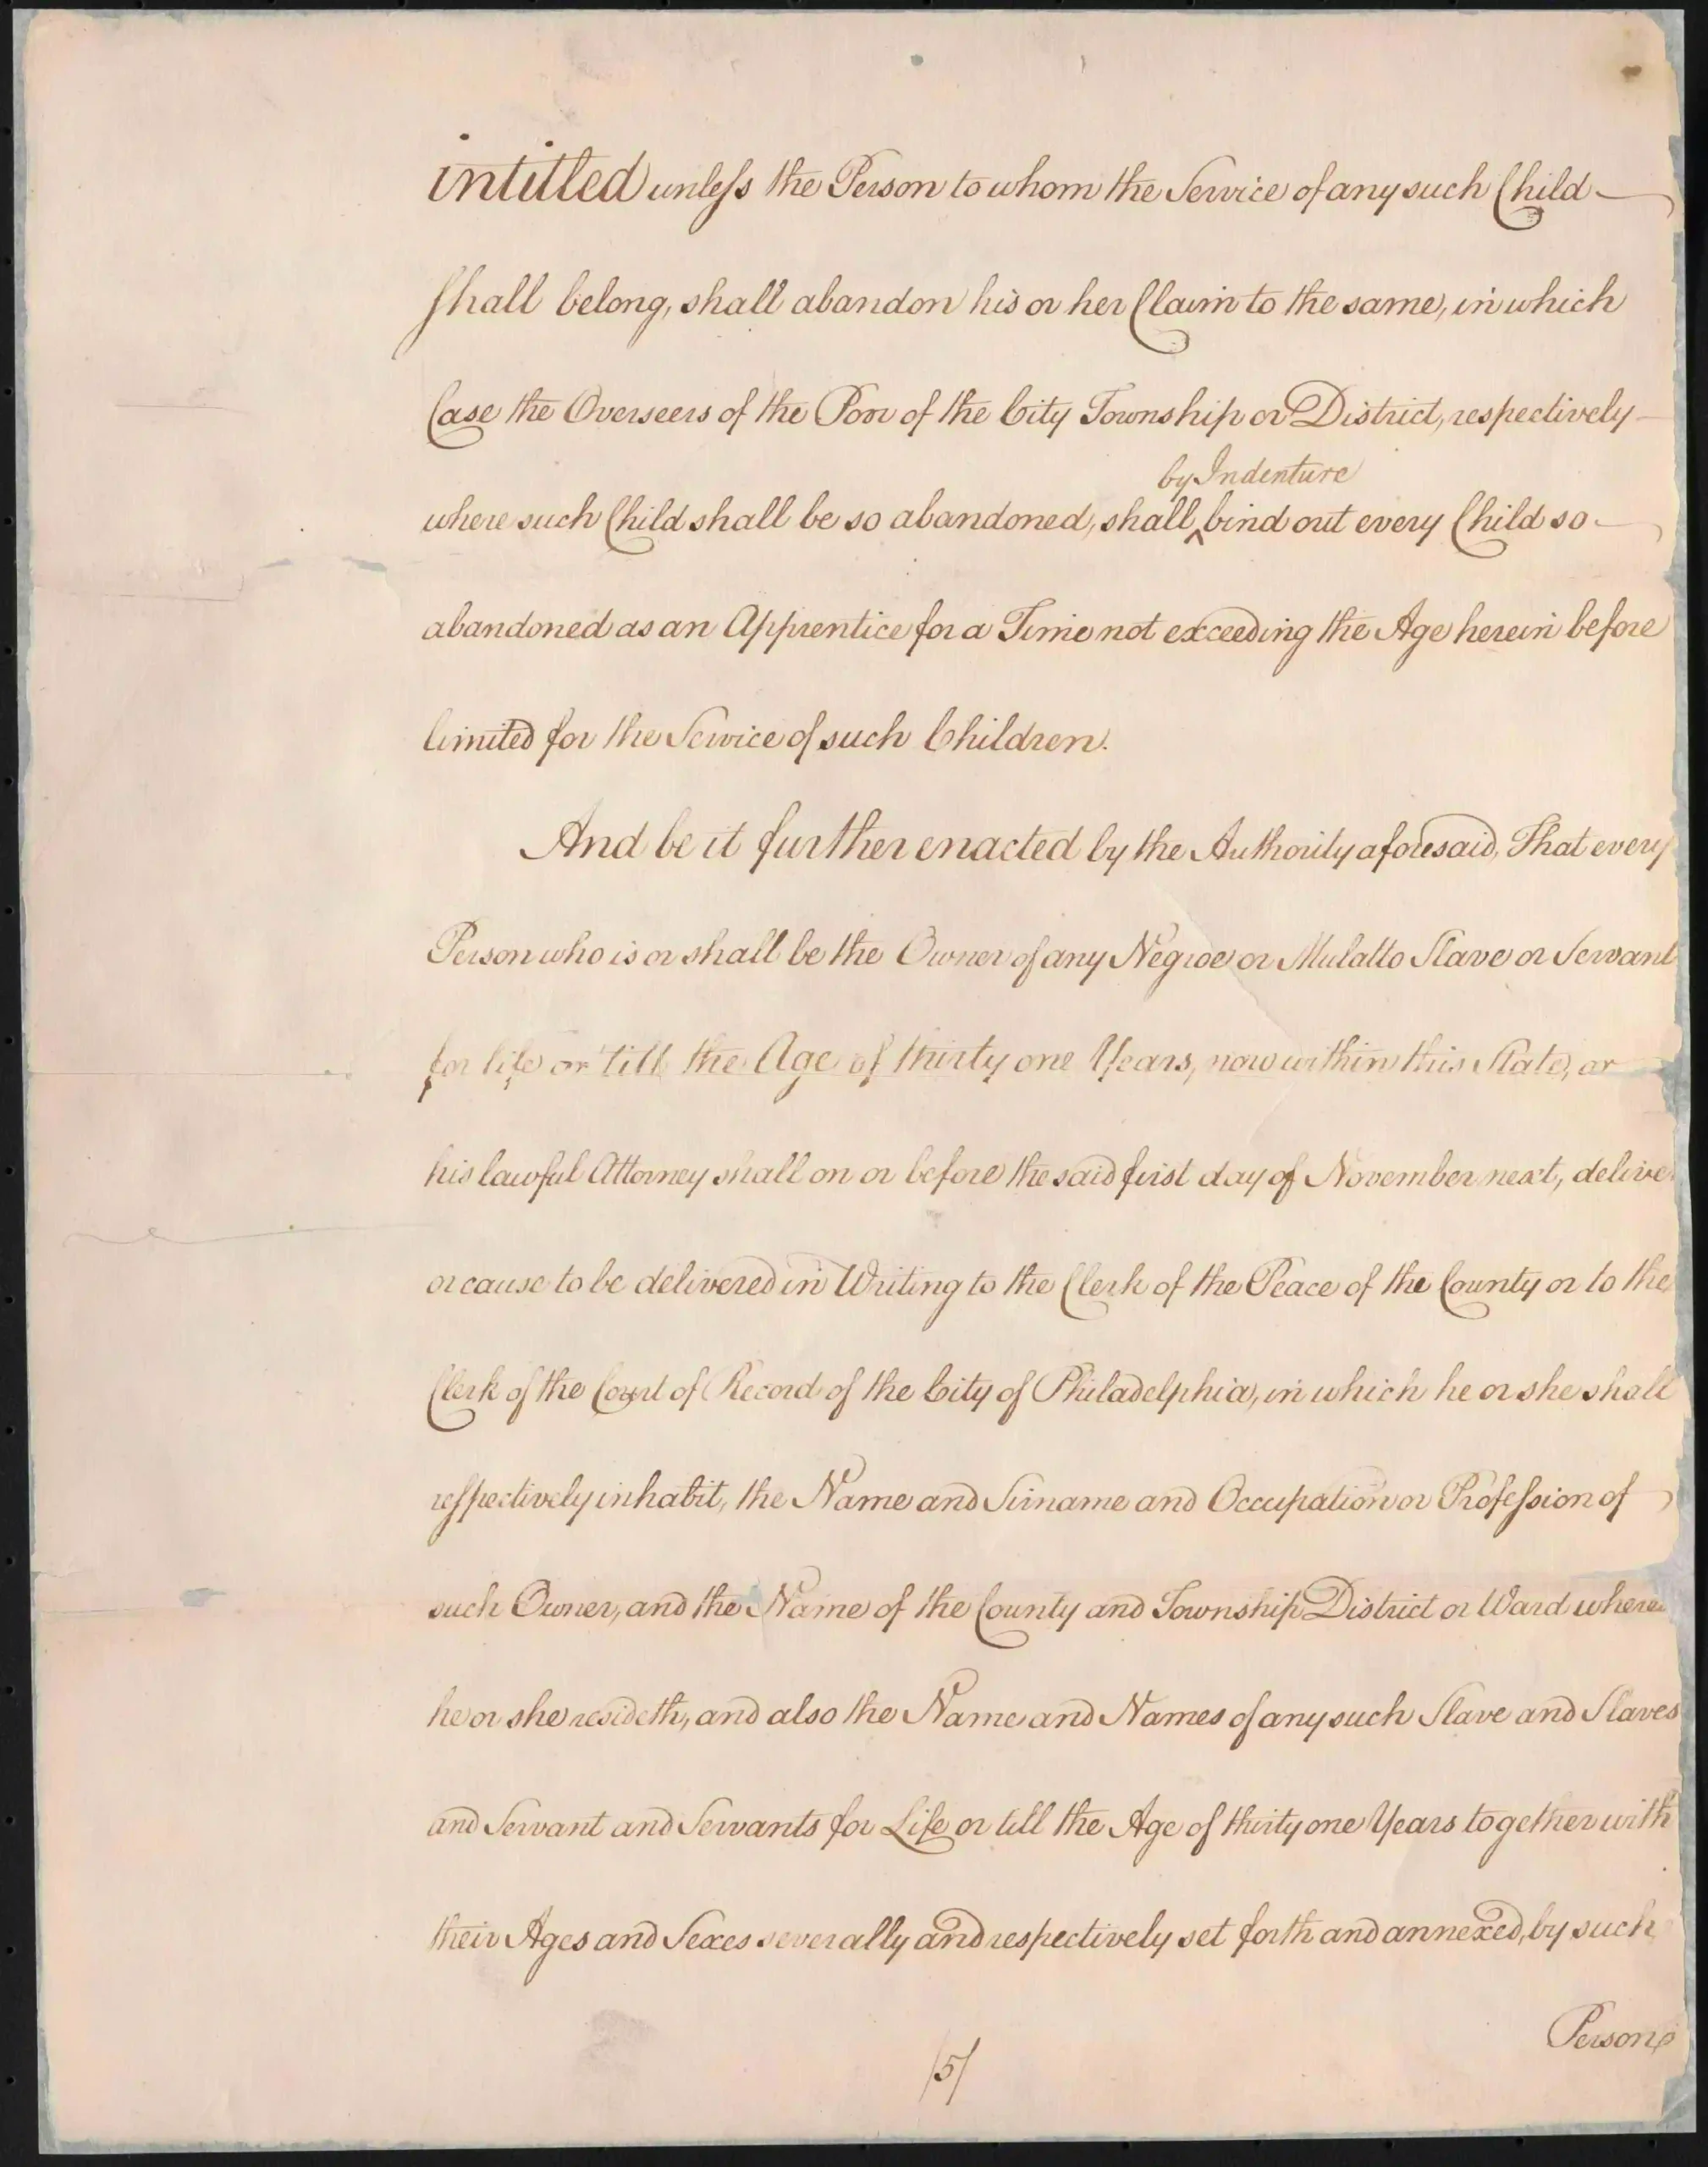 intitled unless the Person to whom the Service of any such Child
shall belong, shall abandon his or her Claim to the same, in which
Case the Overseers of the Poor of the City Township or District, respectively
by Indenture
where such Child shall be so abandoned, shall ‸ bind out every Child so
abandoned as an Apprentice for a Time not exceeding the Age herein before
limited for the Service of such Children.
And be it further enacted by the Authority aforesaid, That every
Person who is or shall be the Owner of any Negroe or Mulatto Slave or Servant
for life or till the Age of thirty one Years, now within this State, or
his lawful Attorney shall on or before the said first day of November next, deliver
or cause to be delivered in Writing to the Clerk of the Peace of the County or to the
Clerk of the Court of Record of the City of Philadelphia, in which he or she shall
respectively inhabit, the Name and Sirname and Occupation or Profession of
such Owner, and the Name of the County and Township District or Ward where
he or she resideth, and also the Name and Names of any such Slave and Slaves
and Servant and Servants for Life or till the Age of thirty one Years together with
their Ages and Sexes severally and respectively set forth and annexed, by such
Person
/5/